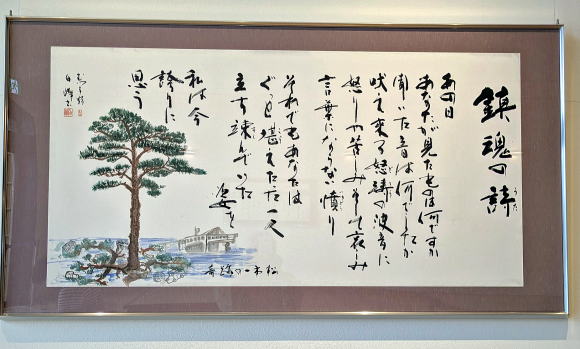 鎮魂の詩
うた
あの日
あなたが見たものは何ですか
聞いた音は何でしたか
吠え来る怒濤の波音に
怒りや苦しみそして哀しみ
言葉にならない憤り
それでもあなたは
ぐっと堪えただ一人
立ち竦んでいた
姿を
私は今
誇りに
思う
奇跡の一本松